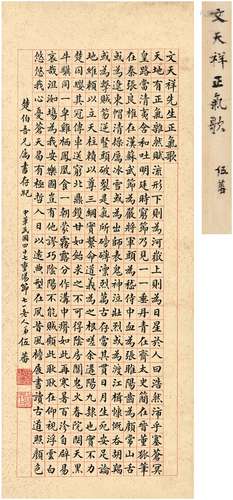 文天祥正氣歌
伍蕃
文天祥先生正氣歌
天地有正氣雜然賦流形下則為河嶽上則為日星於人曰浩然沛乎塞蒼冥
皇路當清夷含和吐明廷時窮節乃見一一垂丹青在齊太史簡在晉董狐筆
在秦張良椎在漢蘇武節為嚴將軍頭為嵇侍中血為張睢陽齒為顏常山舌
或為遼東帽清操厲冰雪或為出師表鬼神泣壯烈或為渡江楫慷慨吞胡羯
或為擊賊笏逆豎頭破裂是氣所磅礴凜烈萬古存當其貫日月生死安足論
地維賴以立天柱賴以尊三綱實繫命道義為之根嗟余遘陽九隸也實不力
楚囚纓其冠傳車送窮北鼎鑊甘如飴求之不可得陰房闃鬼火春院閟天黑
牛驥同一皁雞棲鳳凰食一朝蒙霧露分作溝中瘠如此再寒暑百沴自辟易
哀哉沮洳場為我安樂國豈有他謬巧陰陽不能賊顧此耿耿在仰視浮雲白悠悠我
心憂蒼天曷有極哲人日以遠典型在夙昔風檐展書讀古道照顏色
楚伯吾兄屬書存
中華民國四十七重陽節伍蕃